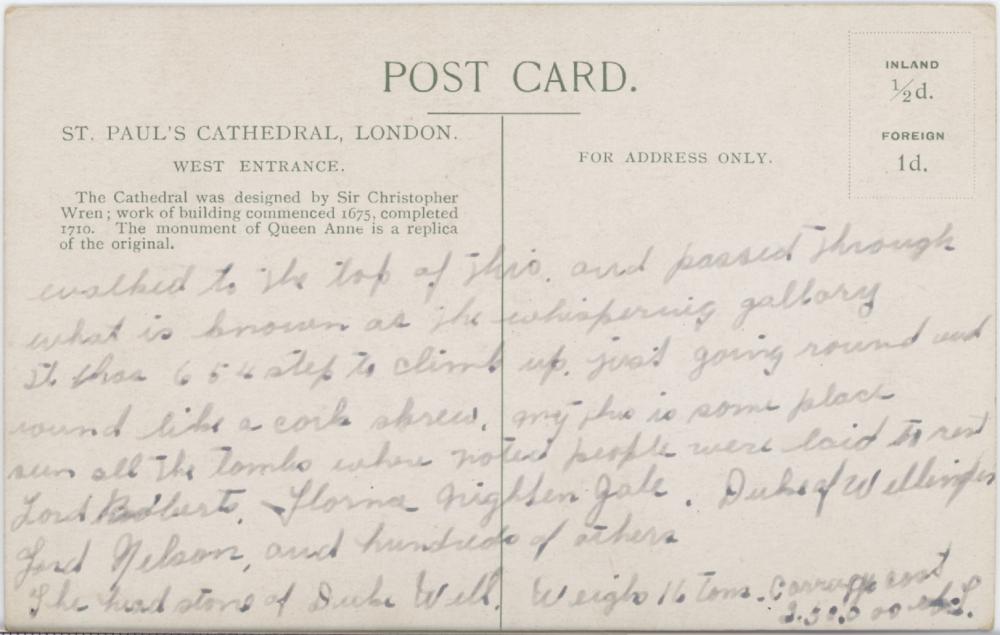 POST CARD.
INLAND
½d.
FOREIGN
1d.
ST. PAUL'S CATHEDRAL, LONDON.
WEST ENTRANCE.
FOR ADDRESS ONLY.
The Cathedral was designed by Sir Christopher
Wren; work of building commenced 1675, completed
1710. The monument of Queen Anne is a replica
of the original.
walked to the top of this. and passed through
what is known as the whispering gallary
It has 654 step to climb up. just going round and
round like a cork skrew. my this is some place
seen all the tombs where noted people were laid to rest
Lord Florna Nighten Gale. Duke of Wellington
Lord Nelson, and hundreds of others
The head stone of Duke Well. Weighs 16 tons. Carrage cost